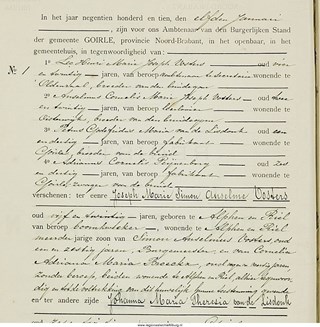 In het jaar negentien honderd en tien, den elfden Januari
, zijn voor ons Ambtenaar van den Burgerlijken Stand
der gemeente GOIRLE, provincie Noord-Brabant, in het openbaar, in het
gemeentehuis, in tegenwoordigheid van:
No 1
1e Leo Henri Marie Joseph Vosters oud vier
en twintig jaren, van beroep wonende te
Oldenzaal, broeder van den bruidegom
2e Anselmus Cornelis Marie Joseph Vosters oud
en twintig jaren, van beroep wonende te
Oisterwijk, broeder van den bruidegom
3e Petrus Maria van de Lisdonk oud een
en dertig jaren, van beroep fabrikant wonende te
Goirle, broeder van de bruid
4e Adrianus Cornelis oud zes
en dertig jaren, van beroep fabrikant wonende te
Goirle, zwager van de bruid
verschenen: ter eenre Joseph Marie Simon Anselme Vosters
oud vijf en twintig jaren, geboren te Alphen en Riel
van beroep boomkweeker, wonende te Alphen en Riel,
meerder jarige zoon van Simon Anselmus Vosters oud
en zestig jaren, Burgemeester, en van Cornelia
Adriana Maria oud jaren
zonder beroep, beiden wonende te Alphen en Riel,
die
en ter andere zijde Johanna Maria Theresia van de Lisdonk
www.regionaalarchieftilburg.nl